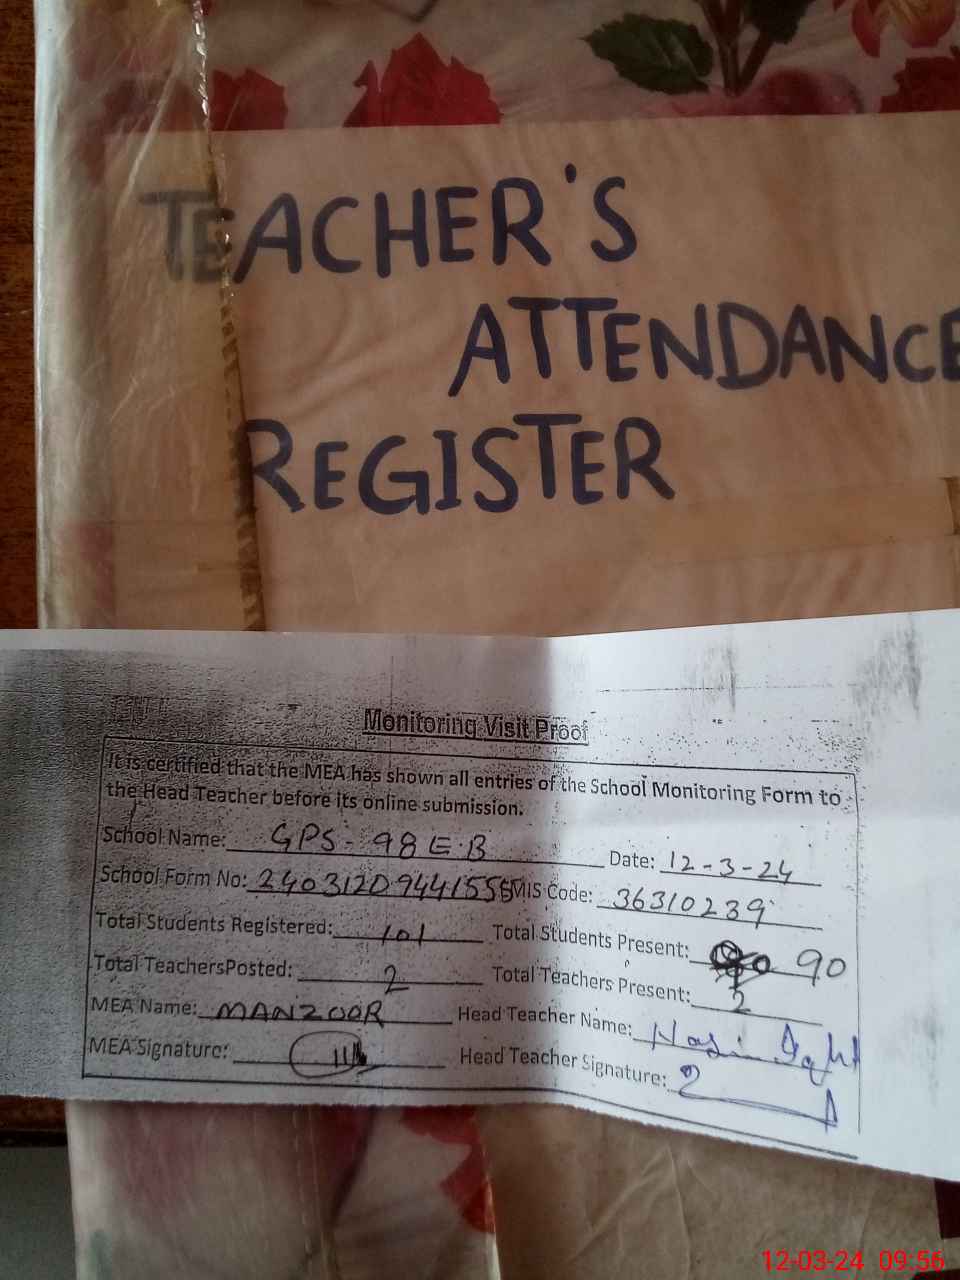 TEACHER'S
ATTENDANCE
REGISTER
Monitoring Visit Proof
It is certified that the MEA has shown all entries of the School Monitoring Form to
the Head Teacher before its online submission.
School Name: GPS - 98 E.B Date: 12-3-24
School Form No: 240312094415 EMIS Code: 36310239
Total Students Registered: 101 Total Students Present: 90
Total TeachersPosted: 2 Total Teachers Present: 2
MEA Name: MANZOOR Head Teacher Name:
MEA Signature: Head Teacher Signature:
12-03-24 09:56